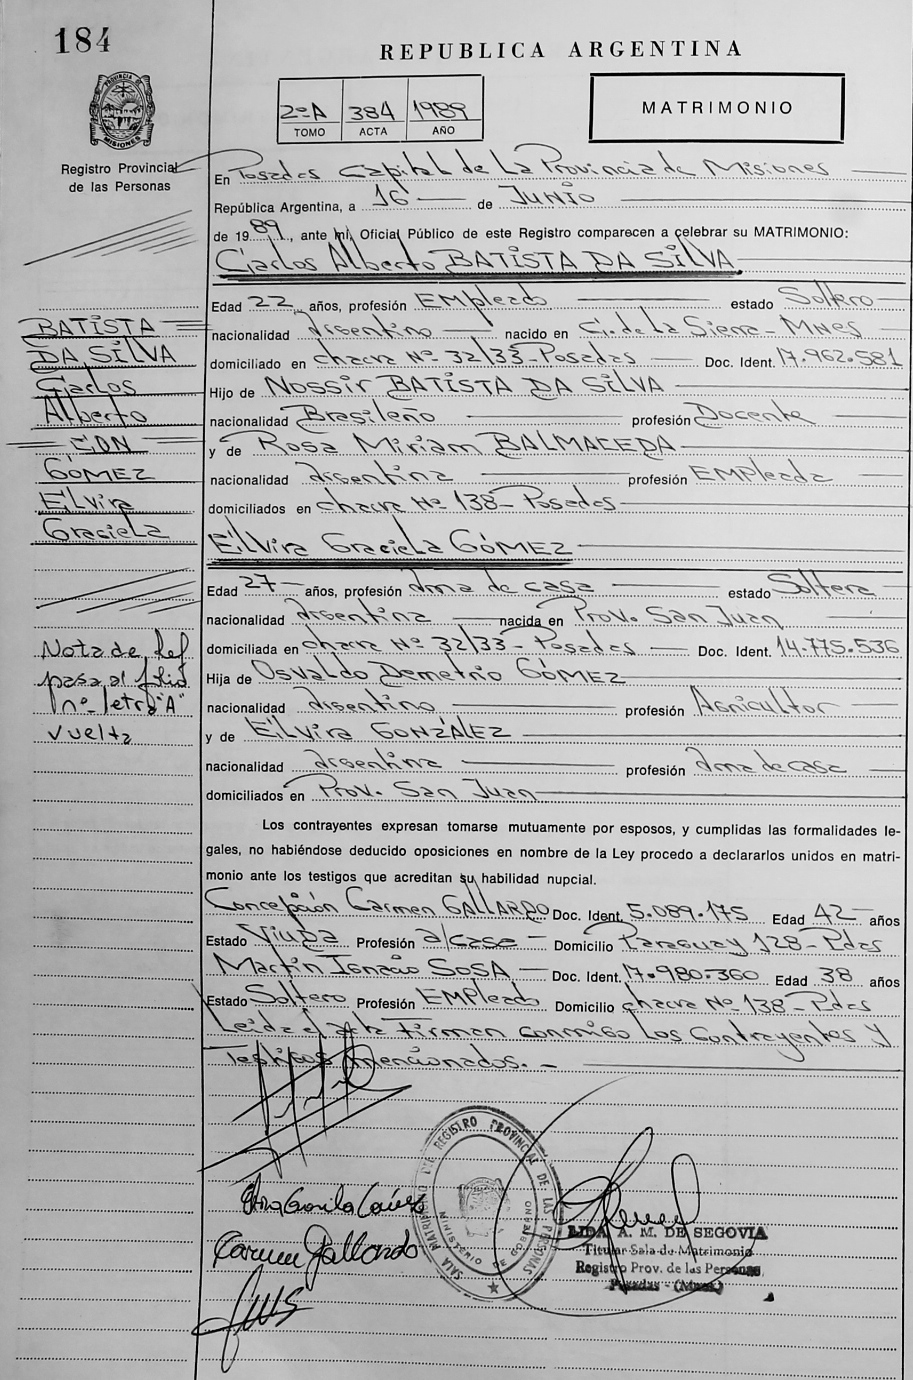 184
REPUBLICA ARGENTINA
2º A 384 1989
TOMO ACTA AÑO
MATRIMONIO
PROVINCIA DE MISIONES
Registro Provincial
de las Personas
En Posadas Capital de La Provincia de Misiones
República Argentina, a 16 de Junio
de 1989, ante mi, Oficial Público de este Registro comparecen a celebrar su MATRIMONIO:
Carlos Alberto BATISTA DA SILVA
Edad 22 años, profesión Empleado estado Soltero
nacionalidad Argentino nacido en C. de La Sierra - Mnes
domiciliado en chacra Nº 32/33 - Posadas Doc. Ident. 17.962.581
Hijo de Nossir BATISTA DA SILVA
nacionalidad Brasileño profesión Docente
y de Rosa Miriam BALMACEDA
nacionalidad Argentina profesión Empleada
domiciliados en chacra Nº 138 - Posadas
Elvira Graciela GÓMEZ
Edad 27 años, profesión Ama de casa estado Soltera
nacionalidad Argentina nacida en Prov. San Juan
domiciliada en chacra Nº 32/33 - Posadas Doc. Ident. 14.775.536
Hija de Osvaldo Demetrio GÓMEZ
nacionalidad Argentino profesión Agricultor
y de Elvira GONZÁLEZ
nacionalidad Argentina profesión Ama de casa
domiciliados en Prov. San Juan
Los contrayentes expresan tomarse mutuamente por esposos, y cumplidas las formalidades le-
gales, no habiéndose deducido oposiciones en nombre de la Ley procedo a declararlos unidos en matri-
monio ante los testigos que acreditan su habilidad nupcial.
Concepción Carmen GALLARDO Doc. Ident. 5.089.175 Edad 42 años
Estado Viuda Profesión a/casa Domicilio Paraguay 128 - Pdas
Martín Ignacio SOSA Doc. Ident. 17.980.360 Edad 38 años
Estado Soltero Profesión Empleado Domicilio chacra Nº 138 - Pdas
Leída el acta Firman conmigo Los Contrayentes y
Testigos mencionados. -
BATISTA
DA SILVA
Carlos
Alberto
CON
GÓMEZ
Elvira
Graciela
Nota de Ref
pasa al folio
nº letra "A"
vuelta
Carmen Gallardo
SALA MATRIMONIO DEL REGISTRO PROVINCIAL DE LAS PERSONAS
MINISTERIO DE GOBIERNO
LIDA A. M. DE SEGOVIA
Titular Sala de Matrimonio
Registro Prov. de las Personas
Posadas - (Mnes)